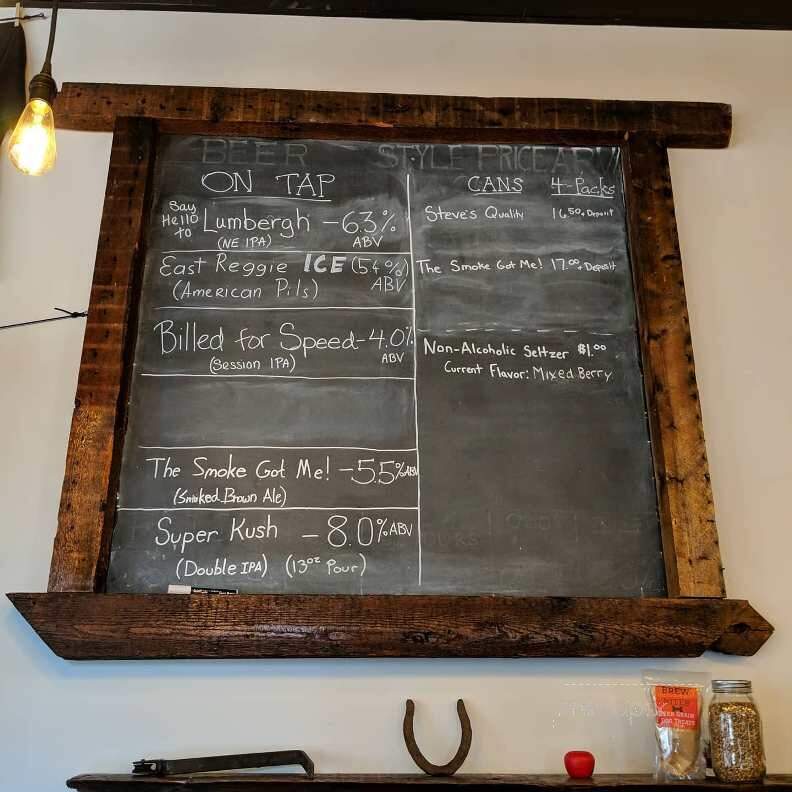 BEER STYLE PRICE ABV
ON TAP
Say Hello to Lumbergh - 6.3% ABV
(NE IPA)
East Reggie ICE (5.4%) ABV
(American Pils)
Billed for Speed - 4.0% ABV
(Session IPA)
The Smoke Got Me! - 5.5% ABV
(Smoked Brown Ale)
Super Kush - 8.0% ABV
(Double IPA) (13oz Pour)
CANS 4-Packs
Steve's Quality 16.50 + Deposit
The Smoke Got Me! 17.00 + Deposit
Non-Alcoholic Seltzer $1.00
Current Flavor: Mixed Berry
BREW
BEER GRAIN
DOG TREATS